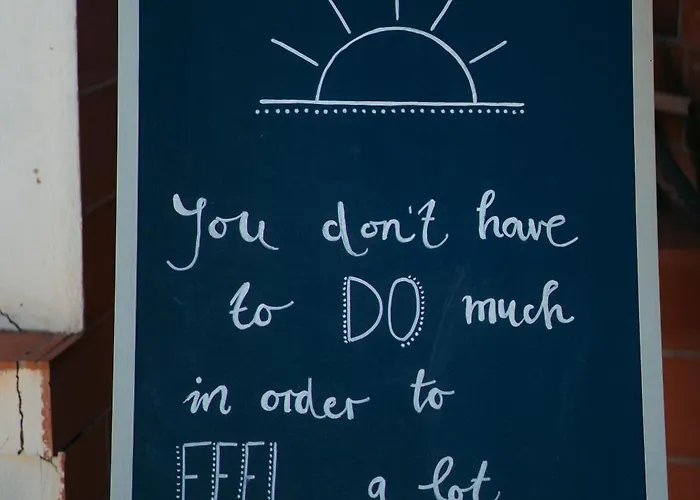 You don't have
to DO much
in order to
FEEL a lot